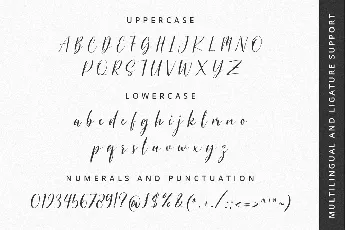 UPPERCASE
A B C D E F G H I J K L M N O
P Q R S T U V W X Y Z
LOWERCASE
a b c d e f g h i j k l m n o
p q r s t u v w x y z
NUMERALS AND PUNCTUATION
MULTILINGUAL AND LIGATURE SUPPORT